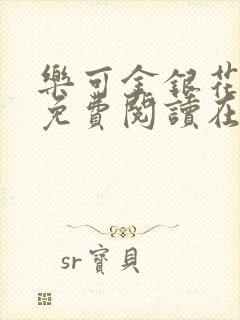 樂可金銀花
免費閱讀在
sr寶貝